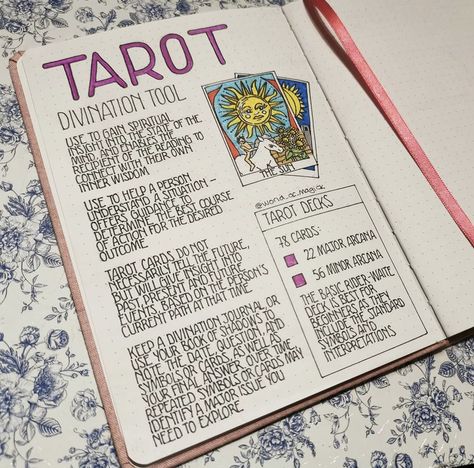 TAROT
DIVINATION TOOL
USE TO GAIN SPIRITUAL
INSIGHT INTO THE STATE OF THE
MIND AND ENABLES THE
RECIPIENT OF THE READING TO
CONNECT WITH THEIR OWN
INNER WISDOM
USE TO HELP A PERSON
UNDERSTAND A SITUATION –
OFFERS GUIDANCE TO
DETERMINE THE BEST COURSE
OF ACTION FOR THE DESIRED
OUTCOME
TAROT CARDS DO NOT
NECESSARILY TELL THE FUTURE,
BUT WILL GIVE INSIGHT INTO
PAST, PRESENT AND FUTURE
EVENTS, BASED ON THE PERSON'S
CURRENT PATH AT THAT TIME
KEEP A DIVINATION JOURNAL OR
USE YOUR BOOK OF SHADOWS TO
NOTE THE DATE, QUESTION, AND
SYMBOLS OR CARDS, AS WELL AS
YOUR FINAL ANSWER. OVER TIME
REPEATED SYMBOLS OR CARDS MAY
IDENTIFY A MAJOR ISSUE YOU
NEED TO EXPLORE
THE SUN
@world_of_magick
TAROT DECKS
78 CARDS:
22 MAJOR ARCANA
56 MINOR ARCANA
THE BASIC RIDER-WAITE
DECK IS BEST FOR
BEGINNERS AS THEY
INCLUDE THE STANDARD
SYMBOLS AND
INTERPRETATIONS